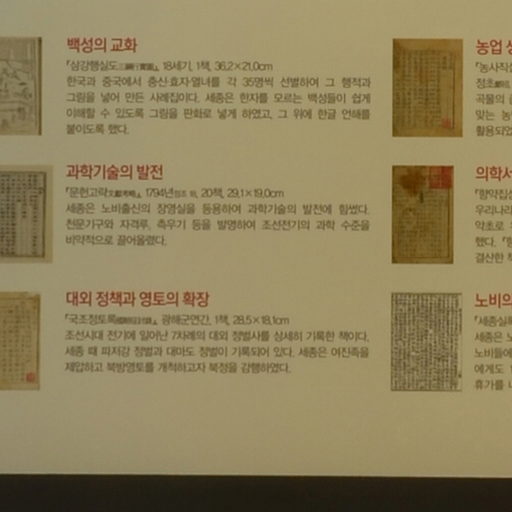 백성의 교화
『삼강행실도三綱行實圖』, 18세기, 1책, 36.2×21.0cm
한국과 중국에서 충신·효자·열녀를 각 35명씩 선별하여 그 행적과
그림을 넣어 만든 사례집이다. 세종은 한자를 모르는 백성들이 쉽게
이해할 수 있도록 그림을 판화로 넣게 하였고, 그 위에 한글 언해를
붙이도록 했다.
과학기술의 발전
1794년, 20책, 29.1×19.0cm
세종은 노비출신의 장영실을 등용하여 과학기술의 발전에 힘썼다.
천문기구와 자격루, 측우기 등을 발명하여 조선전기의 과학 수준을
비약적으로 끌어올렸다.
대외 정책과 영토의 확장
『국조정토록』, 광해군연간, 1책, 28.5×18.1cm
조선시대 전기에 일어난 7차례의 대외 정벌사를 상세히 기록한 책이다.
세종 때 파저강 정벌과 대마도 정벌이 기록되어 있다. 세종은 여진족을
제압하고 북방영토를 개척하고자 북정을 감행하였다.
농업
『농사직설
정초
곡물의
맞는 농
활용되었
의학서
『향약집성
우리나라
약초로
했다. 『향
결산한 책
노비의
『세종실록
세종은 노
노비들에
에게도 1
휴가를 내